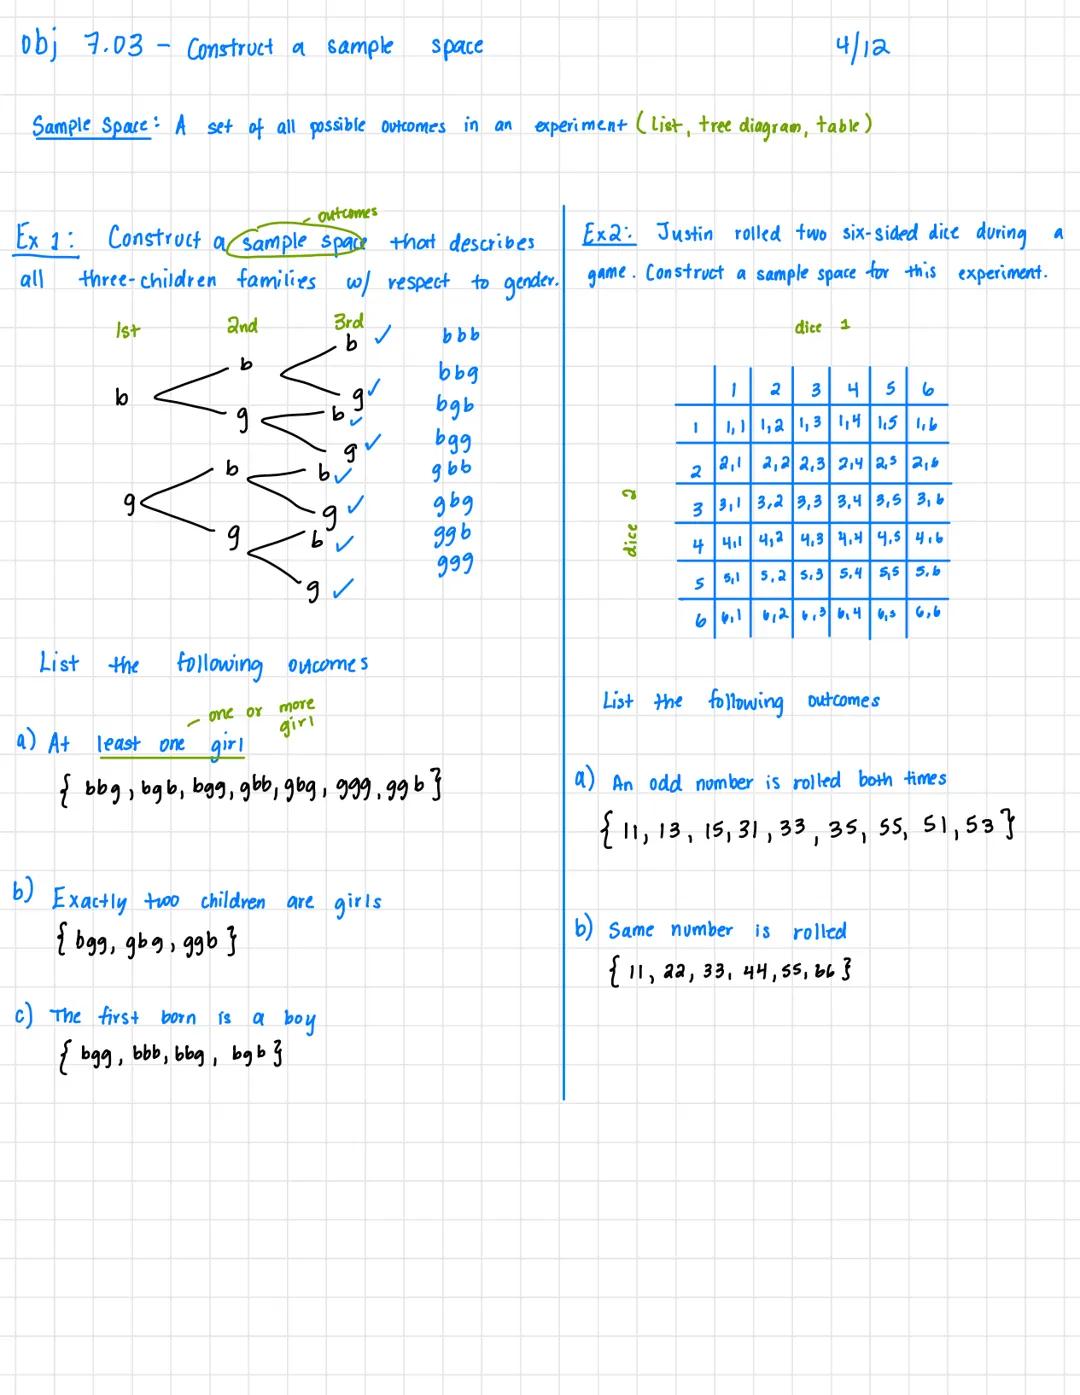 obj 7.03 - Construct a sample space 4/12
Sample Space: A set of all possible outcomes in an experiment (list, tree diagram, table)
outcomes
Ex 1: Construct a sample space that describes
all three-children families w/ respect to gender.
1st 2nd 3rd
b ✓ bbb
b
b g ✓ bbg
g b ✓ bgb
g ✓ bgg
b b ✓ gbb
g g ✓ gbg
g b ✓ ggb
g ✓ ggg
List the following oucomes
one or more
girl
a) At least one girl
{ bbg, bgb, bgg, gbb, gbg, ggg, ggb }
b) Exactly two children are girls
{ bgg, gbg, ggb }
c) The first born is a boy
{ bgg, bbb, bbg, bgb }
Ex2: Justin rolled two six-sided dice during a
game. Construct a sample space for this experiment.
dice 1
dice 2
1 2 3 4 5 6
1 1,1 1,2 1,3 1,4 1,5 1,6
2 2,1 2,2 2,3 2,4 2,5 2,6
3 3,1 3,2 3,3 3,4 3,5 3,6
4 4,1 4,2 4,3 4,4 4,5 4,6
5 5,1 5,2 5,3 5,4 5,5 5,6
6 6,1 6,2 6,3 6,4 6,5 6,6
List the following outcomes
a) An odd number is rolled both times
{ 11, 13, 15, 31, 33, 35, 55, 51, 53 }
b) Same number is rolled
{ 11, 22, 33, 44, 55, 66 }